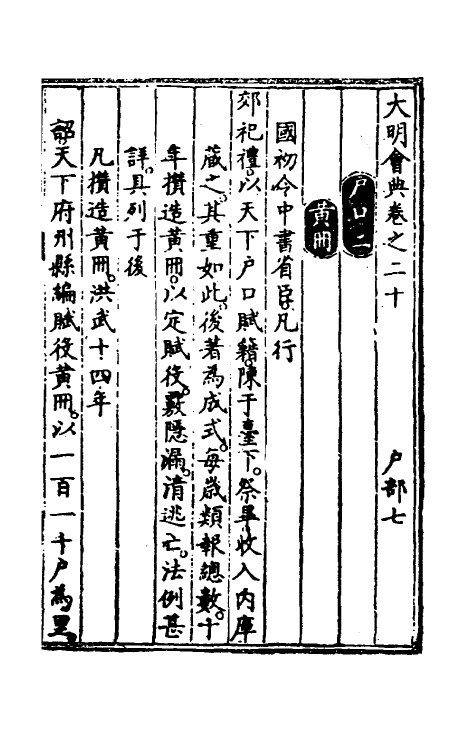 大明會典卷之二十 戶部七
戶口二
黃冊
國初令中書省臣凡行
郊祀禮以天下戶口賦籍陳于臺下。祭畢收入內庫
藏之。其重如此。後著為成式。每歲類報總數。十
年攢造黃冊。以定賦役。覈隱漏。清逃亡。法例甚
詳。具列于後
凡攢造黃冊。洪武十四年
詔天下府州縣編賦役黃冊。以一百一十戶為里。